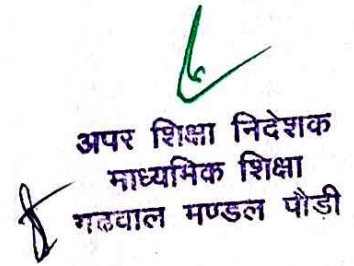 अपर शिक्षा निदेशक
माध्यमिक शिक्षा
गढवाल मण्डल पौड़ी